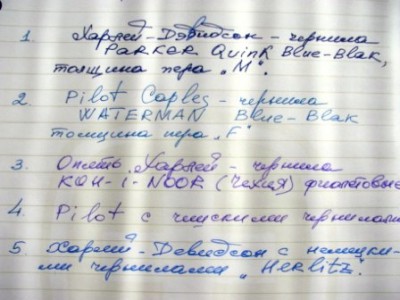 1. Харлей-Дэвидсон - чернила
PARKER Quink Blue-Blak,
толщина пера „М".
2. Pilot Caples - чернила
WATERMAN Blue-Blak
толщина пера „F"
3. Опять „Харлей - чернила
KOH-I-NOOR (Чехия) фиолетовые
4. Pilot с чешскими чернилами
5. Харлей-Дэвидсон с немецки-
ми чернилами „Herlitz".